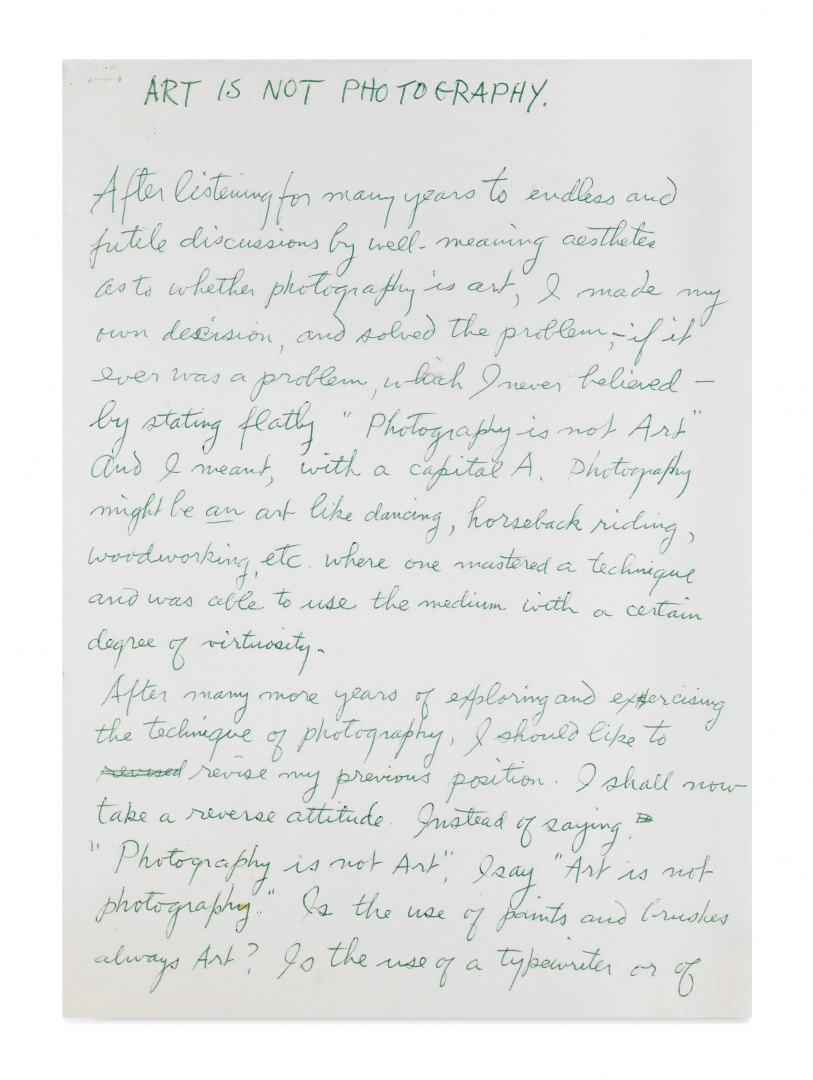 ART IS NOT PHOTOGRAPHY.
After listening for many years to endless and
futile discussions by well-meaning aesthetes
as to whether photography is art, I made my
own decision, and solved the problem, - if it
ever was a problem, which I never believed -
by stating flatly "Photography is not Art"
And I meant, with a capital A. Photography
might be an art like dancing, horseback riding,
woodworking, etc. where one mastered a technique
and was able to use the medium with a certain
degree of virtuosity.
After many more years of exploring and exercising
the technique of photography, I should like to
revised revise my previous position. I shall now
take a reverse attitude. Instead of saying
"Photography is not Art", I say "Art is not
photography." Is the use of paints and brushes
always Art? Is the use of a typewriter or of